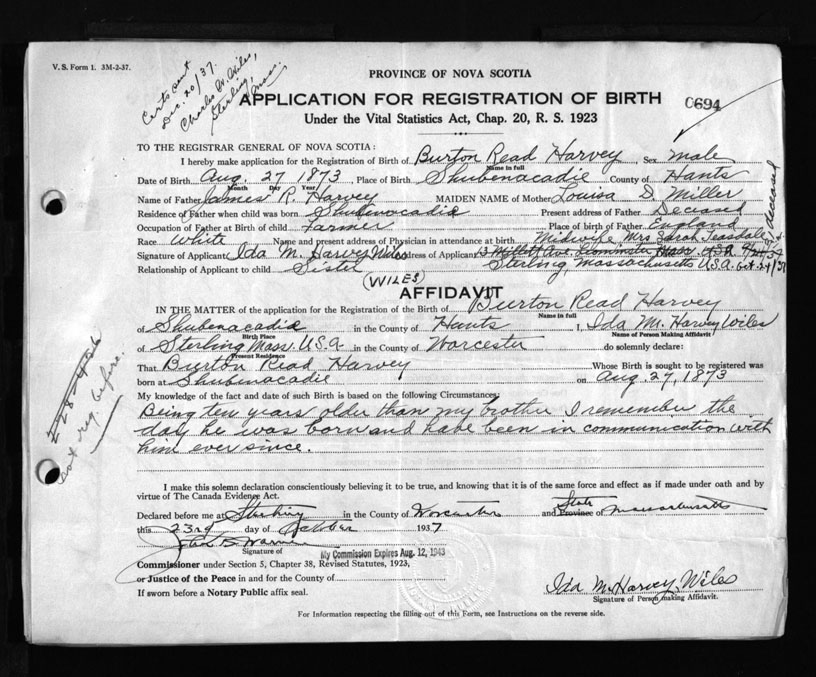 V. S. Form 1. 3M-2-37.
Certs sent
Dec. 20/37.
Charles W. Wiles,
Sterling,
Mass.
PROVINCE OF NOVA SCOTIA
APPLICATION FOR REGISTRATION OF BIRTH
0694
Under the Vital Statistics Act, Chap. 20, R. S. 1923
TO THE REGISTRAR GENERAL OF NOVA SCOTIA:
I hereby make application for the Registration of Birth of Burton Read Harvey Sex male
Name in full
Date of Birth Aug. 27 1873, Place of Birth Shubenacadie County of Hants
Month Day Year
Name of Father James R. Harvey MAIDEN NAME of Mother Louisa D. Miller
Residence of Father when child was born Shubenacadie Present address of Father Deceased
Occupation of Father at Birth of child Farmer Place of birth of Father England
Race White Name and present address of Physician in attendance at birth Midwife Mrs. Sarah Teasdale deceased
Signature of Applicant Ida M. Harvey Wiles Address of Applicant 13 Ave. Leominster Mass. U.S.A.
Relationship of Applicant to child Sister Sterling, Massachusetts U.S.A. Oct. 24/37
(WILES)
AFFIDAVIT
IN THE MATTER of the application for the Registration of the Birth of Burton Read Harvey
Name in full
of Shubenacadie in the County of Hants I, Ida M. Harvey Wiles
Birth Place Name of Person Making Affidavit
of Sterling Mass. U.S.A. in the County of Worcester do solemnly declare:
Present Residence
That Burton Read Harvey Whose Birth is sought to be registered was
born at Shubenacadie on Aug. 27, 1873
My knowledge of the fact and date of such Birth is based on the following Circumstances:
Being ten years older than my brother I remember the
day he was born and have been in communication with
him ever since.
not reg. before.
I make this solemn declaration conscientiously believing it to be true, and knowing that it is of the same force and effect as if made under oath and by
virtue of The Canada Evidence Act.
Declared before me at Sterling in the County of Worcester and Province State of Massachusetts
this 23rd day of October 1937
Signature of My Commission Expires Aug. 12, 1943
Commissioner under Section 5, Chapter 38, Revised Statutes, 1923,
or Justice of the Peace in and for the County of
If sworn before a Notary Public affix seal.
Ida M. Harvey Wiles
Signature of Person making Affidavit.
For Information respecting the filling out of this Form, see Instructions on the reverse side.